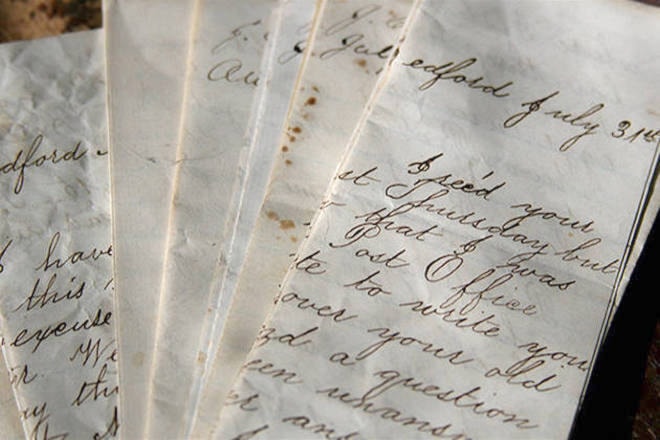 dford
I have
this
excuse
r. We
y th
J.
Au
J.
Jul
edford July 31st
I rec'd your
st Thursday but
that I was
Post Office
te to write you
over your old
d a question
een unans
er an